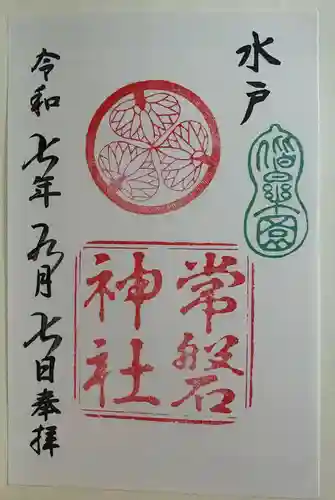 水戸
偕樂園
常磐
神社
令和七年 月七日奉拝